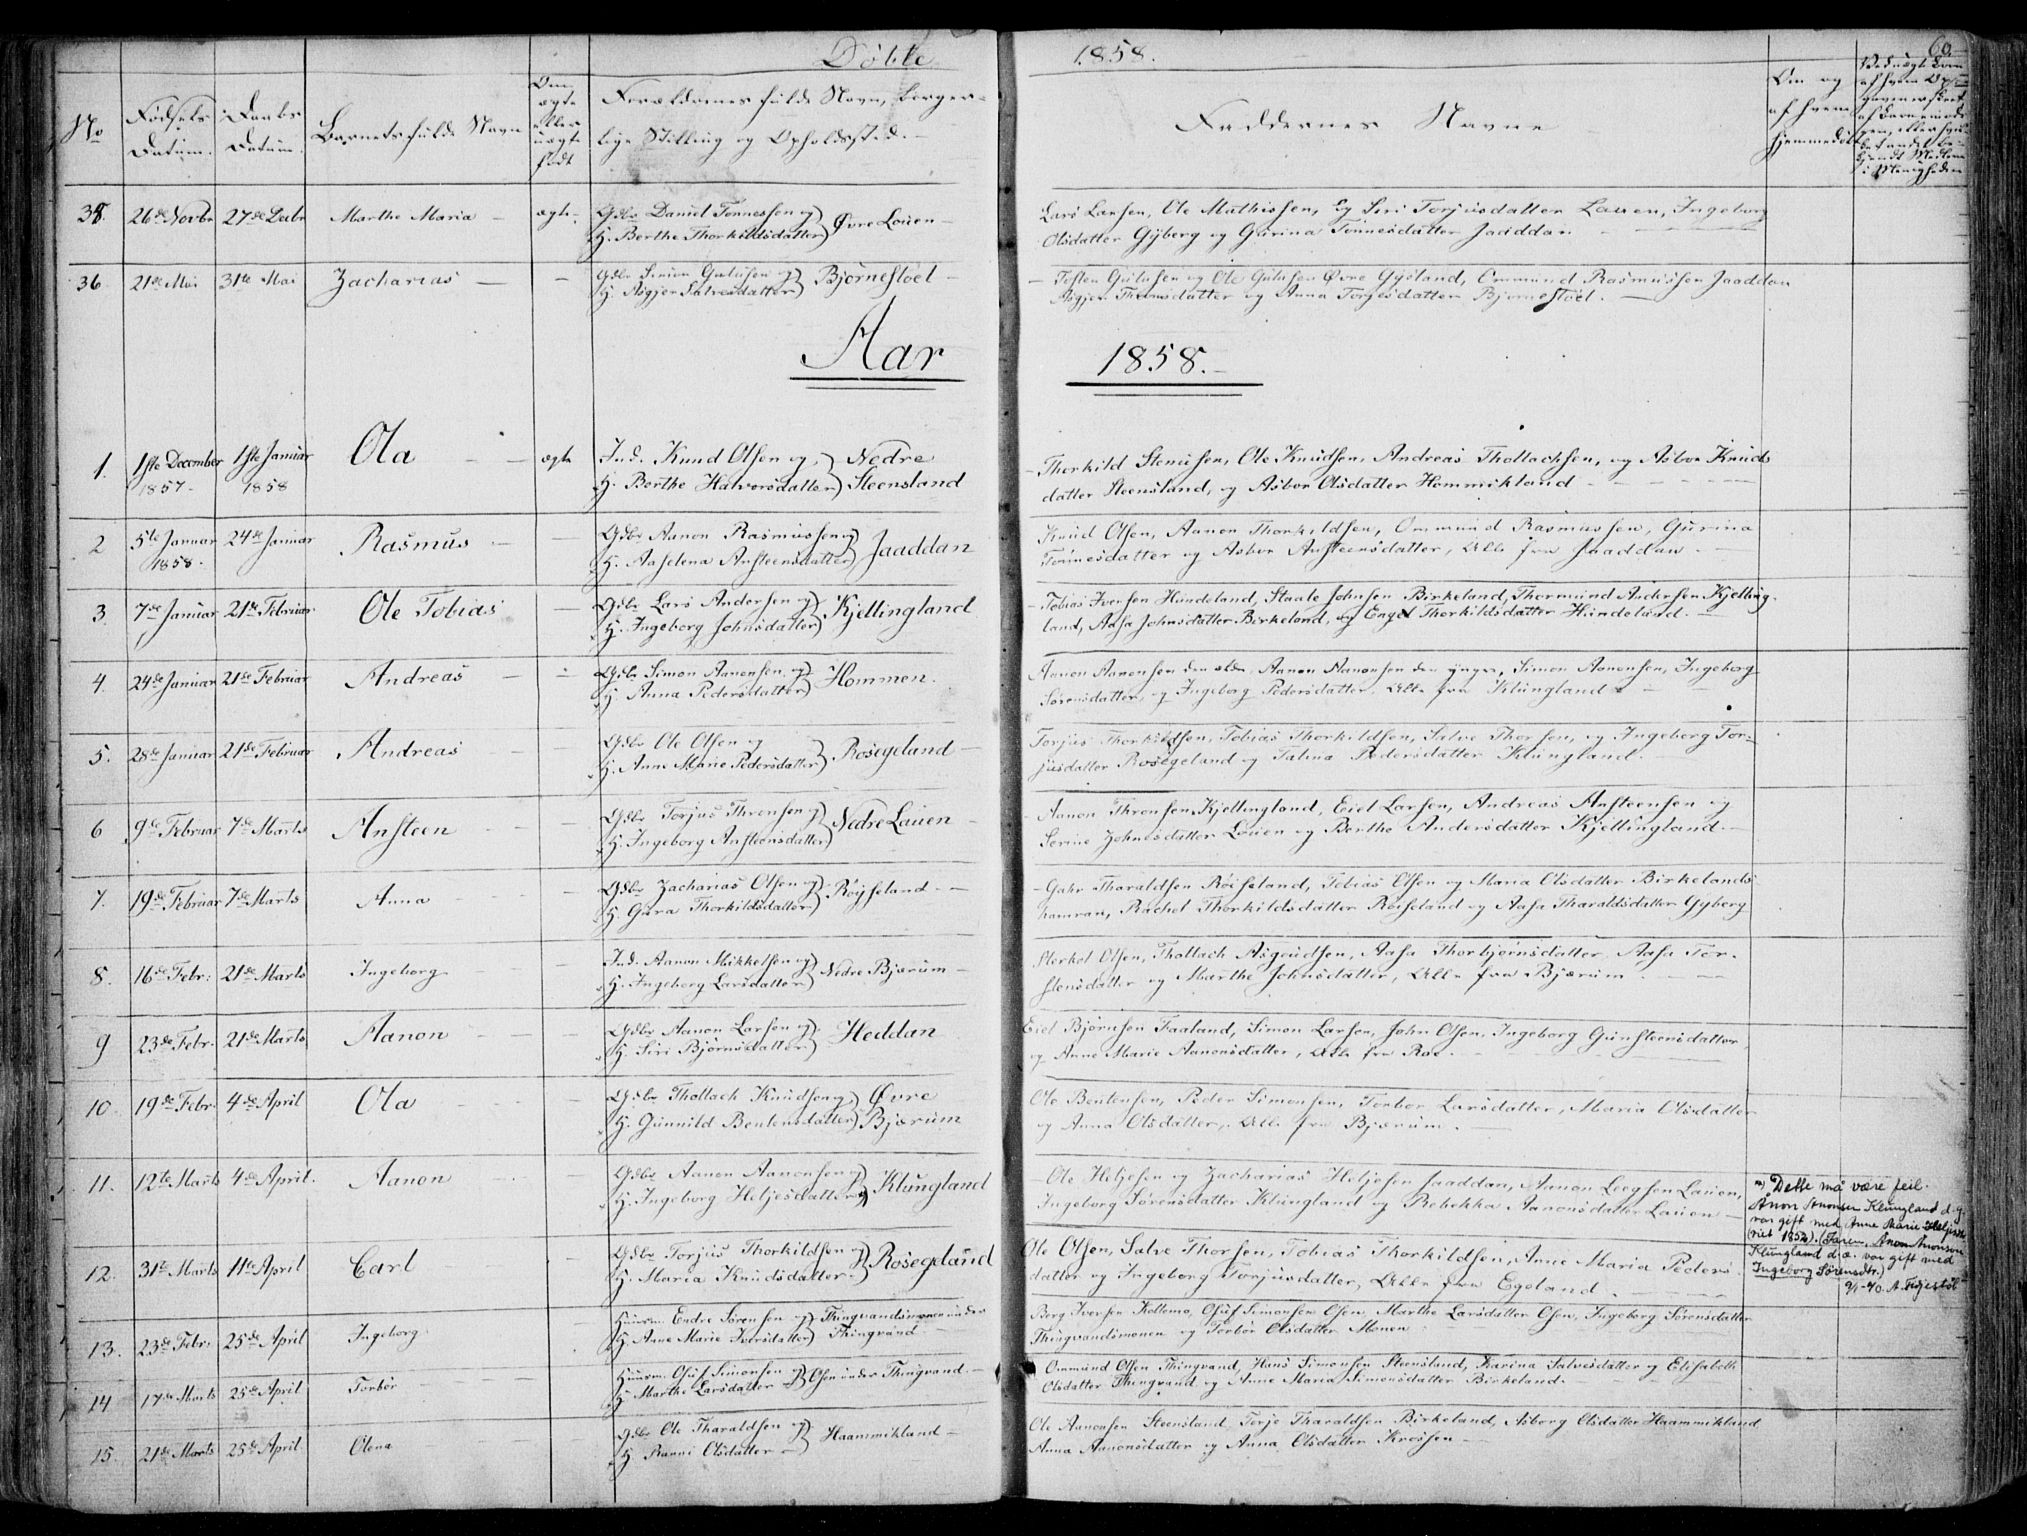 Døbte 1858. 60
No
Fødsels Datum.
Daabs Datum.
Barnets fulde Navn
Om ægte eller uægte født
Forældrenes fulde Navn, borger-
lige Stilling og Opholdssted.
Faddernes Navne
Om og af hvem hjemmedøbt
35. 26de Novbr 27de Decbr Marthe Maria ægte Gdbr Daniel Tønnessen og
H. Berthe Thorkildsdatter Øvre Louen
Lars Larsen, Ole Mathissen, og Siri Torjusdatter Lauen, Ingeborg
Olsdatter Gyberg og Gurina Tønnesdatter Jaaddan
36 21de Mai 31te Mai Zacharias Gdbr Simon Gulufsen og
H. Asgjer Salvesdatter Bjørnestøel
Testen Gulufsen og Ole Gulufsen Øvre Gysland, Ommund Rasmussen Jaaddan
Asgjer Thomsdatter og Anna Torjesdatter Bjørnestøel.
Aar 1858.
1. 1ste December 1857. 1ste Januar 1858 Ola ægte Ind. Knud Olsen og
H. Berthe Halvorsdatter Nedre Steensland
Thorkild Stenersen, Ole Knudsen, Andreas Thollachsen, og Asbor Knuds
datter Steensland, og Asbor Olsdatter Hommikland
2 5te Januar 1858. 24de Januar Rasmus Gdbr Aanon Rasmussen og
H. Aaselena Ansteensdatter Jaaddan
Knud Olsen, Aanon Thorkildsen, Ommund Rasmussen, Gurina
Tønnesdatter og Asbor Ansteensdatter, Alle fra Jaaddan.
3 7de Januar 21de Februar Ole Tobias Gdbr Lars Andersen og
H. Ingeborg Johnsdatter Kjellingland
Tobias Iversen Hundeland, Staale Johnsen Birkeland, Thormund Andersen Kjelling-
land, Aasa Johnsdatter Birkeland, og Engel Thorkildsdatter Hundeland.
4. 24de Januar 21de Februar Andreas Gdbr Simon Aanonsen og
H. Anna Pedersdatter Hommen.
Aanon Aanonsen den ældre Aanon Aanonsen den yngre, Simon Aanonsen, Ingeborg
Sørensdatter, og Ingeborg Pedersdatter, Alle fra Klungland
5. 28de Januar 21de Februar Andreas Gdbr Ole Olsen og
H. Anne Marie Pedersdatter Rosegeland
Torjus Thorkildsen, Tobias Thorkildsen, Salve Thorsen, og Ingeborg Tor-
jusdatter Rosegeland og Talina Pedersdatter Klungland.
6 9de Februar 7de Marts Ansteen Gdbr Torjus Thronsen og
H. Ingeborg Ansteensdatter Nedre Lauen
Aanon Thronsen Kjellingland, Eiel Larsen, Andreas Ansteensen og
Serine Johnesdatter Louen og Berthe Andersdatter Kjellingland.
7. 19de Februar 7de Marts Anna Gdbr Zacharias Olsen og
H. Gura Thorkildsdatter Røyseland
Gahr Tharaldsen Røiseland, Tobias Olsen og Maria Olsdatter Birkelands
hamran, Rachel Thorkildsdatter Røiseland og Aasa Tharaldsdatter Gyberg
8. 16de Febr. 21de Marts Ingeborg Ind. Aanon Mikkelsen og
H. Ingeborg Larsdatter Nedre Bjærum
Sterkel Olsen, Thollach Asgoudsen, Aasa Thorbjørnsdatter, Aasa Tor-
stensdatter og Marthe Johnsdatter, Alle fra Bjærum
9 23de Febr. 21de Marts Aanon Gdbr Aanon Larsen og
H. Siri Bjørnsdatter Heddan
Eiel Bjørnsen Faaland, Simon Larsen, John Olsen, Ingeborg Gunsteensdatter,
og Anne Marie Aanonsdatter, Alle fra Roe.
10. 19de Febr. 4de April Ola Gdbr Thollach Knudsen og
H. Gunnild Bentensdatter Øvre Bjærum
Ole Bentensen, Peder Simonsen, Torbor Larsdatter, Maria Olsdatter
og Anna Olsdatter, Alle fra Bjærum.
11. 12te Marts 4de April. Aanon Gdbr Aanon Aanonsen og
H. Ingeborg Heljesdatter Klungland
Ole Heljesen og Zacharias Heljesen Jaaddan, Aanon Leegsen Lauen,
Ingeborg Sørensdatter Klungland og Rebekka Aanonsdatter Lauen
x) Dette må være feil.
Ånon Ånonsen Klungland d.y.
var gift med Anne Marie Heljesdtr
(viet 1852). (Faren, Anon Anonsen
Klungland d.æ. var gift med
Ingeborg Sørensdtr.)
9/1-40. A. Fidjestøl
12. 31te Marts 11te April Carl Gdbr Torjus Thorkildsen og
H. Maria Knudsdatter Rosegeland
Ole Olsen, Salve Thorsen, Tobias Thorkildsen, Anne Maria Peders-
datter og Ingeborg Torjusdatter, Alle fra Egeland.
13. 23de Febr. 25de April Ingeborg Huusm. Endre Sørensen og
H. Anne Marie Iversdatter Thingvandsmonen under Thingvand
Berg Iversen Kollemo, Oluf Simonsen Osen, Marthe Larsdatter Osen, Ingeborg Sørensdatter
Thingvandsmonen og Torbor Olsdatter Monen
14 17de Marts 25de April Torbor Huusm. Oluf Simonsen og
H. Marthe Larsdatter Osen under Thingvand
Ommund Olsen Thingvand, Hans Simonsen Steensland, Karina Salvesdatter og Elisabeth
Olsdatter Thingvand og Anne Maria Simonsdatter Birkeland.
15. 21de Marts 25de April Olena Gdbr Ole Tharaldsen og
H. Ranni Olsdatter Haammikland
Ole Aanonsen Steensland, Torje Tharaldsen Birkeland, Asborg Olsdatter Haammikland
Anna Aanonsdatter og Anna Olsdatter Krossen